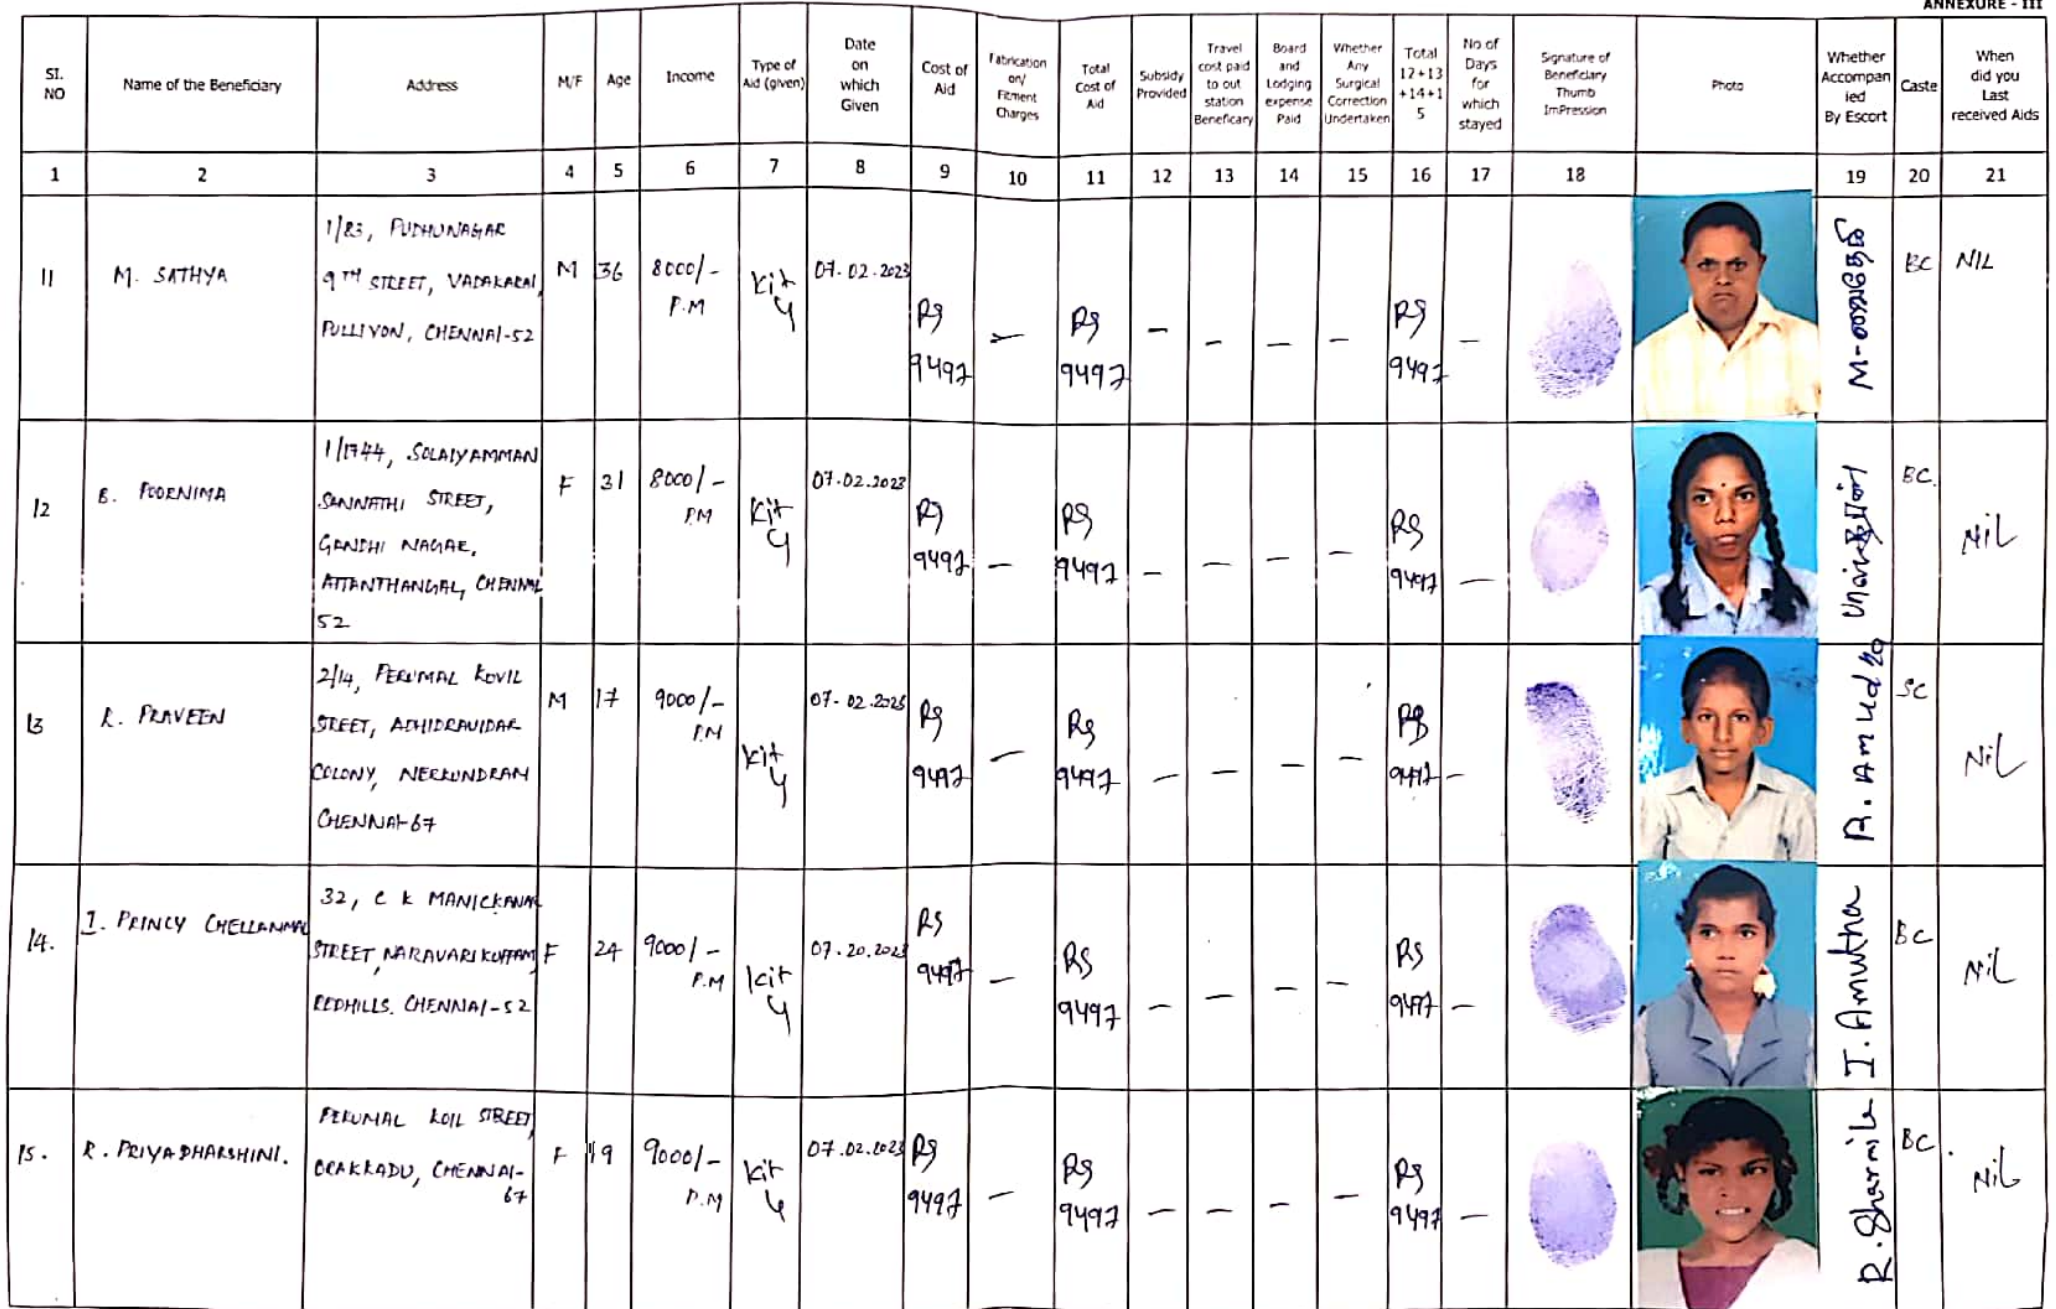 ANNEXURE - III
SI. NO | Name of the Beneficiary | Address | M/F | Age | Income | Type of Aid (given) | Date on which Given | Cost of Aid | Fabrication on/ Fitment Charges | Total Cost of Aid | Subsidy Provided | Travel cost paid to out station Beneficary | Board and Lodging expense Paid | Whether Any Surgical Correction Undertaken | Total 12+13 +14+1 5 | No of Days for which stayed | Signature of Beneficiary Thumb ImPression | Photo | Whether Accompan ied By Escort | Caste | When did you Last received Aids
1 2 3 4 5 6 7 8 9 10 11 12 13 14 15 16 17 18 19 20 21
11 M. SATHYA
1/83, PUDHUNAGAR
9TH STREET, VADAKARAI,
PULLIYON, CHENNAI-52
M 36 8000/-
P.M
Kit
4
07-02-2023
Rs
9497
—
Rs
9497
— — — —
Rs
9497
—
BC NIL
12 B. POORNIMA
1/1744, SOLAIYAMMAN
SANNATHI STREET,
GANDHI NAGAR,
ATTANTHANGAL, CHENNAI
52
F 31 8000/-
P.M
Kit
4
07.02.2023
Rs
9497
—
Rs
9497
— — — —
Rs
9497
—
BC.
NiL
13 R. PRAVEEN
2/14, PERUMAL KOVIL
STREET, ADHIDRAVIDAR
COLONY, NERKUNDRAM
CHENNAI-67
M 17 9000/-
P.M
Kit
4
07-02.2023
Rs
9497
—
Rs
9497
— — — —
Rs
9497
—
R. Amudha
SC
NiL
14. I. PRINCY CHELLAMMAL
32, C K MANICKANAR
STREET, NARAVARIKUPPAM,
REDHILLS. CHENNAI-52
F 24 9000/-
P.M
Kit
4
07.20.2023
Rs
9497
—
Rs
9497
— — — —
Rs
9497
—
I. Amutha
BC
NiL
15. R. PRIYADHARSHINI.
PERUMAL KOIL STREET,
ORAKKADU, CHENNAI-
67
F 19 9000/-
P.M
Kit
4
07.02.2023
Rs
9497
—
Rs
9497
— — — —
Rs
9497
—
R. Sharmila
BC.
NiL